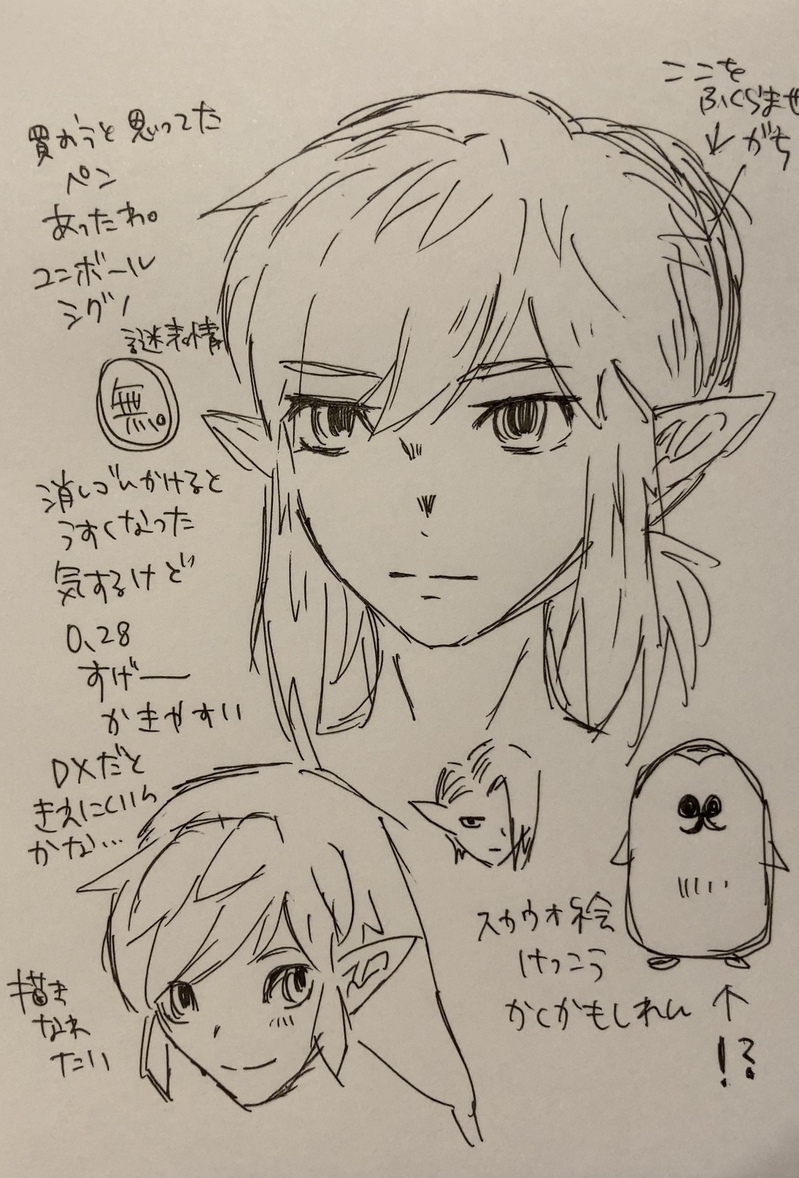 買おうと思ってた
ペン
あったわ。
ユニボール
シグノ
謎表情
無。
消しゴムかけると
うすくなった
気するけど
0.28
すげー
かきやすい
DXだと
きえにくいら
かな…
描き
なれ
たい
ここを
ふくらませ
がち
スカウオ絵
けっこう
かくかもしれん
!?